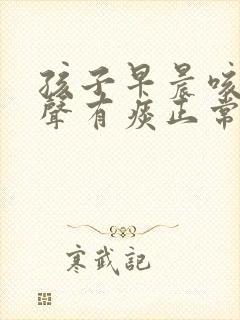 孩子早晨咳
聲有痰正常
寒武記